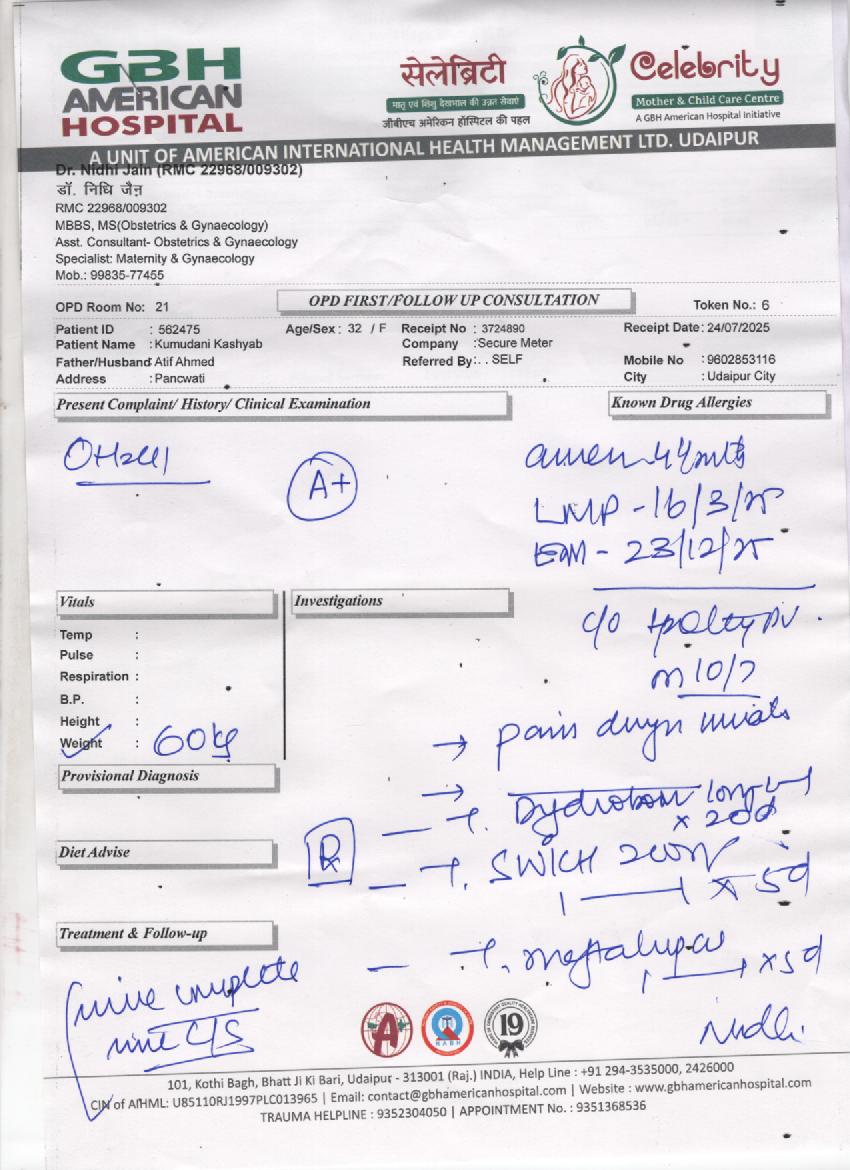 GBH
AMERICAN
HOSPITAL
सेलेब्रिटी
मातृ एवं शिशु देखभाल की उन्नत सेवाएं
जीबीएच अमेरिकन हॉस्पिटल की पहल
Celebrity
Mother & Child Care Centre
A GBH American Hospital Initiative
A UNIT OF AMERICAN INTERNATIONAL HEALTH MANAGEMENT LTD. UDAIPUR
Dr. Nidhi Jain (RMC 22968/009302)
डॉ. निधि जैन
RMC 22968/009302
MBBS, MS(Obstetrics & Gynaecology)
Asst. Consultant- Obstetrics & Gynaecology
Specialist: Maternity & Gynaecology
Mob.: 99835-77455
OPD Room No: 21
OPD FIRST/FOLLOW UP CONSULTATION
Token No.: 6
Patient ID : 562475 Age/Sex: 32 / F Receipt No : 3724890 Receipt Date: 24/07/2025
Patient Name : Kumudani Kashyab Company :Secure Meter
Father/Husband: Atif Ahmed Referred By: . . SELF Mobile No : 9602853116
Address : Pancwati City : Udaipur City
Present Complaint/ History/ Clinical Examination
Known Drug Allergies
A+
LMP - 16/3/25
- 23/12/25
c/o
10/7
Vitals
Investigations
Temp :
Pulse :
Respiration :
B.P. :
Height :
Weight : 60kg
→ pain
→
Provisional Diagnosis
x 20d
Diet Advise
R
- T. SWICH 200
1 x 5d
Treatment & Follow-up
- T.
1 x 5d
complete
urine C/S
Nidhi
A
NABH
19
101, Kothi Bagh, Bhatt Ji Ki Bari, Udaipur - 313001 (Raj.) INDIA, Help Line : +91 294-3535000, 2426000
CIN of AIHML: U85110RJ1997PLC013965 | Email: contact@gbhamericanhospital.com | Website : www.gbhamericanhospital.com
TRAUMA HELPLINE : 9352304050 | APPOINTMENT No. : 9351368536